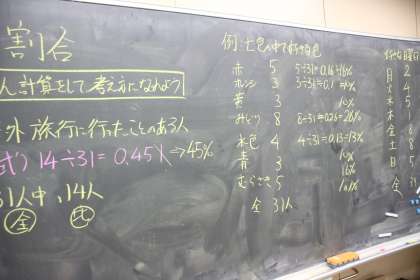 割合
ん計算をして考え方になれよう
外旅行に行ったことのある人
式) 14÷31=0.451 ⇒45%
31人中、14人
全 比
例:七色の中で好きな色
赤 5 5÷31=0.16 16%
オレンジ 3 3÷31=0.1 10%
黄 3 10%
みどり 8 8÷31=0.26 26%
水色 4 4÷31=0.13 13%
青 3 10%
むらさき 5 16%
全 31人
好きな曜日
日 2
月 4
火 5
水 1
木
金 8
土
日
全